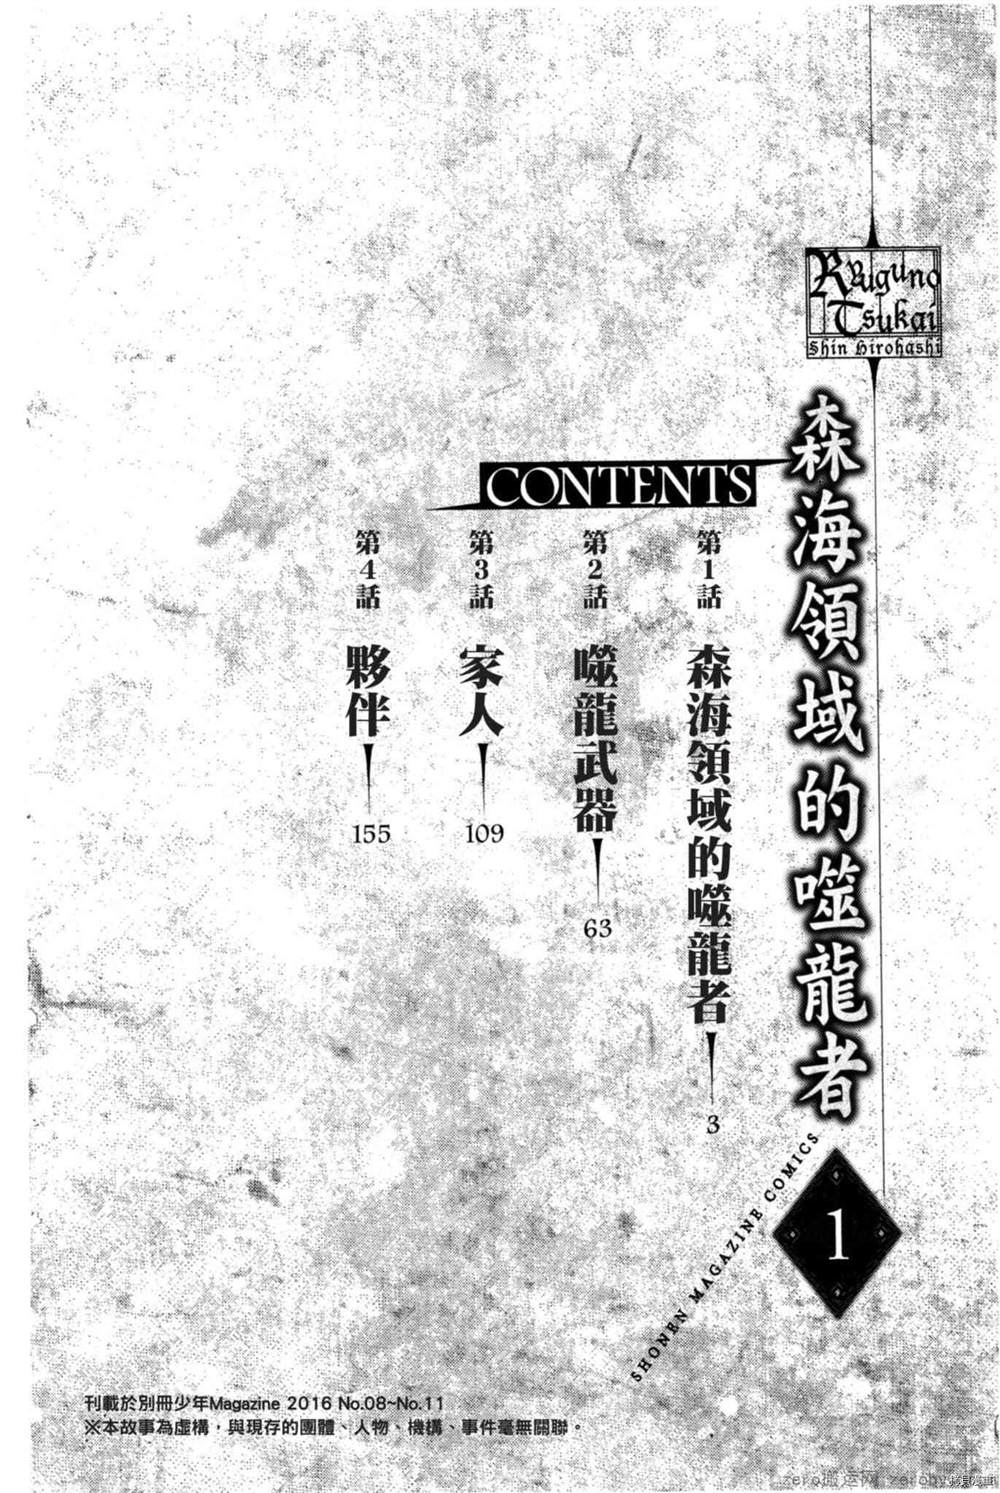 Ryuguno
Tsukai
Shin Hirohashi
森海領域的噬龍者
1
SHONEN MAGAZINE COMICS
CONTENTS
第1話 森海領域的噬龍者 3
第2話 噬龍武器 63
第3話 家人 109
第4話 夥伴 155
刊載於別冊少年Magazine 2016 No.08~No.11
※本故事為虛構，與現存的團體、人物、機構、事件毫無關聯。
zero搬运网